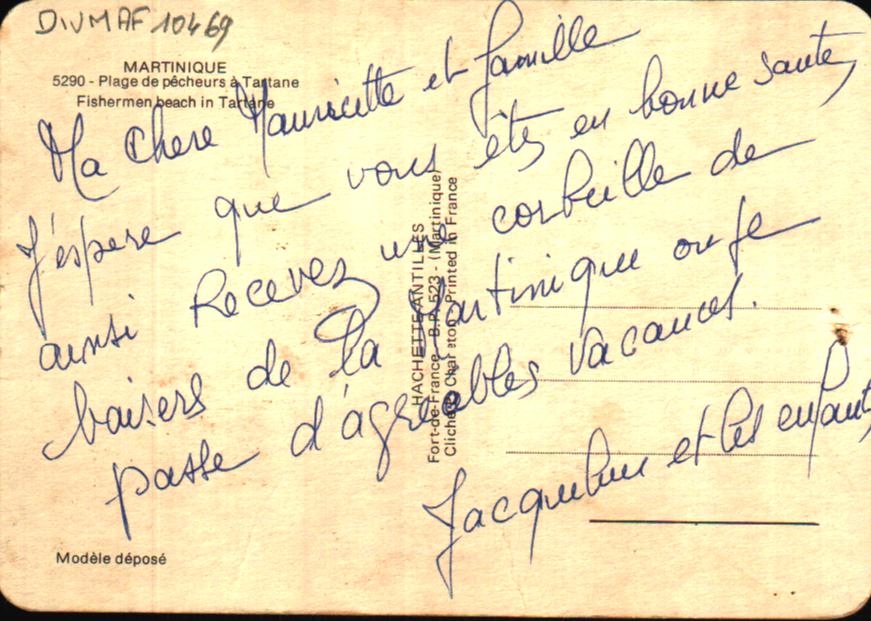 DIVMAF 10469
MARTINIQUE
5290 - Plage de pêcheurs à Tartane
Fishermen beach in Tartane
Ma Chere Mauricette et famille
J'éspere que vous êtes en bonne sante,
ainsi Recevez une corbeille de
baisers de la Martinique ou je
passe d'agréables vacances.
Jacqueline et les enfants
HACHETTE ANTILLES
Fort-de-France - B.P. 523 - (Martinique)
Cliché Charleton - Printed in France
Modèle déposé